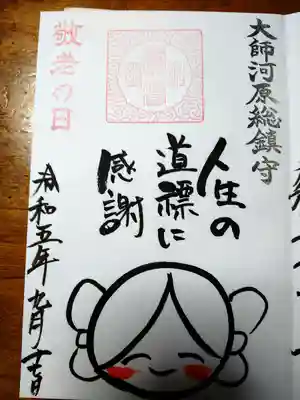 大師河原総鎮守
敬老の日
人生の
道標に
感謝
令和五年九月十八日